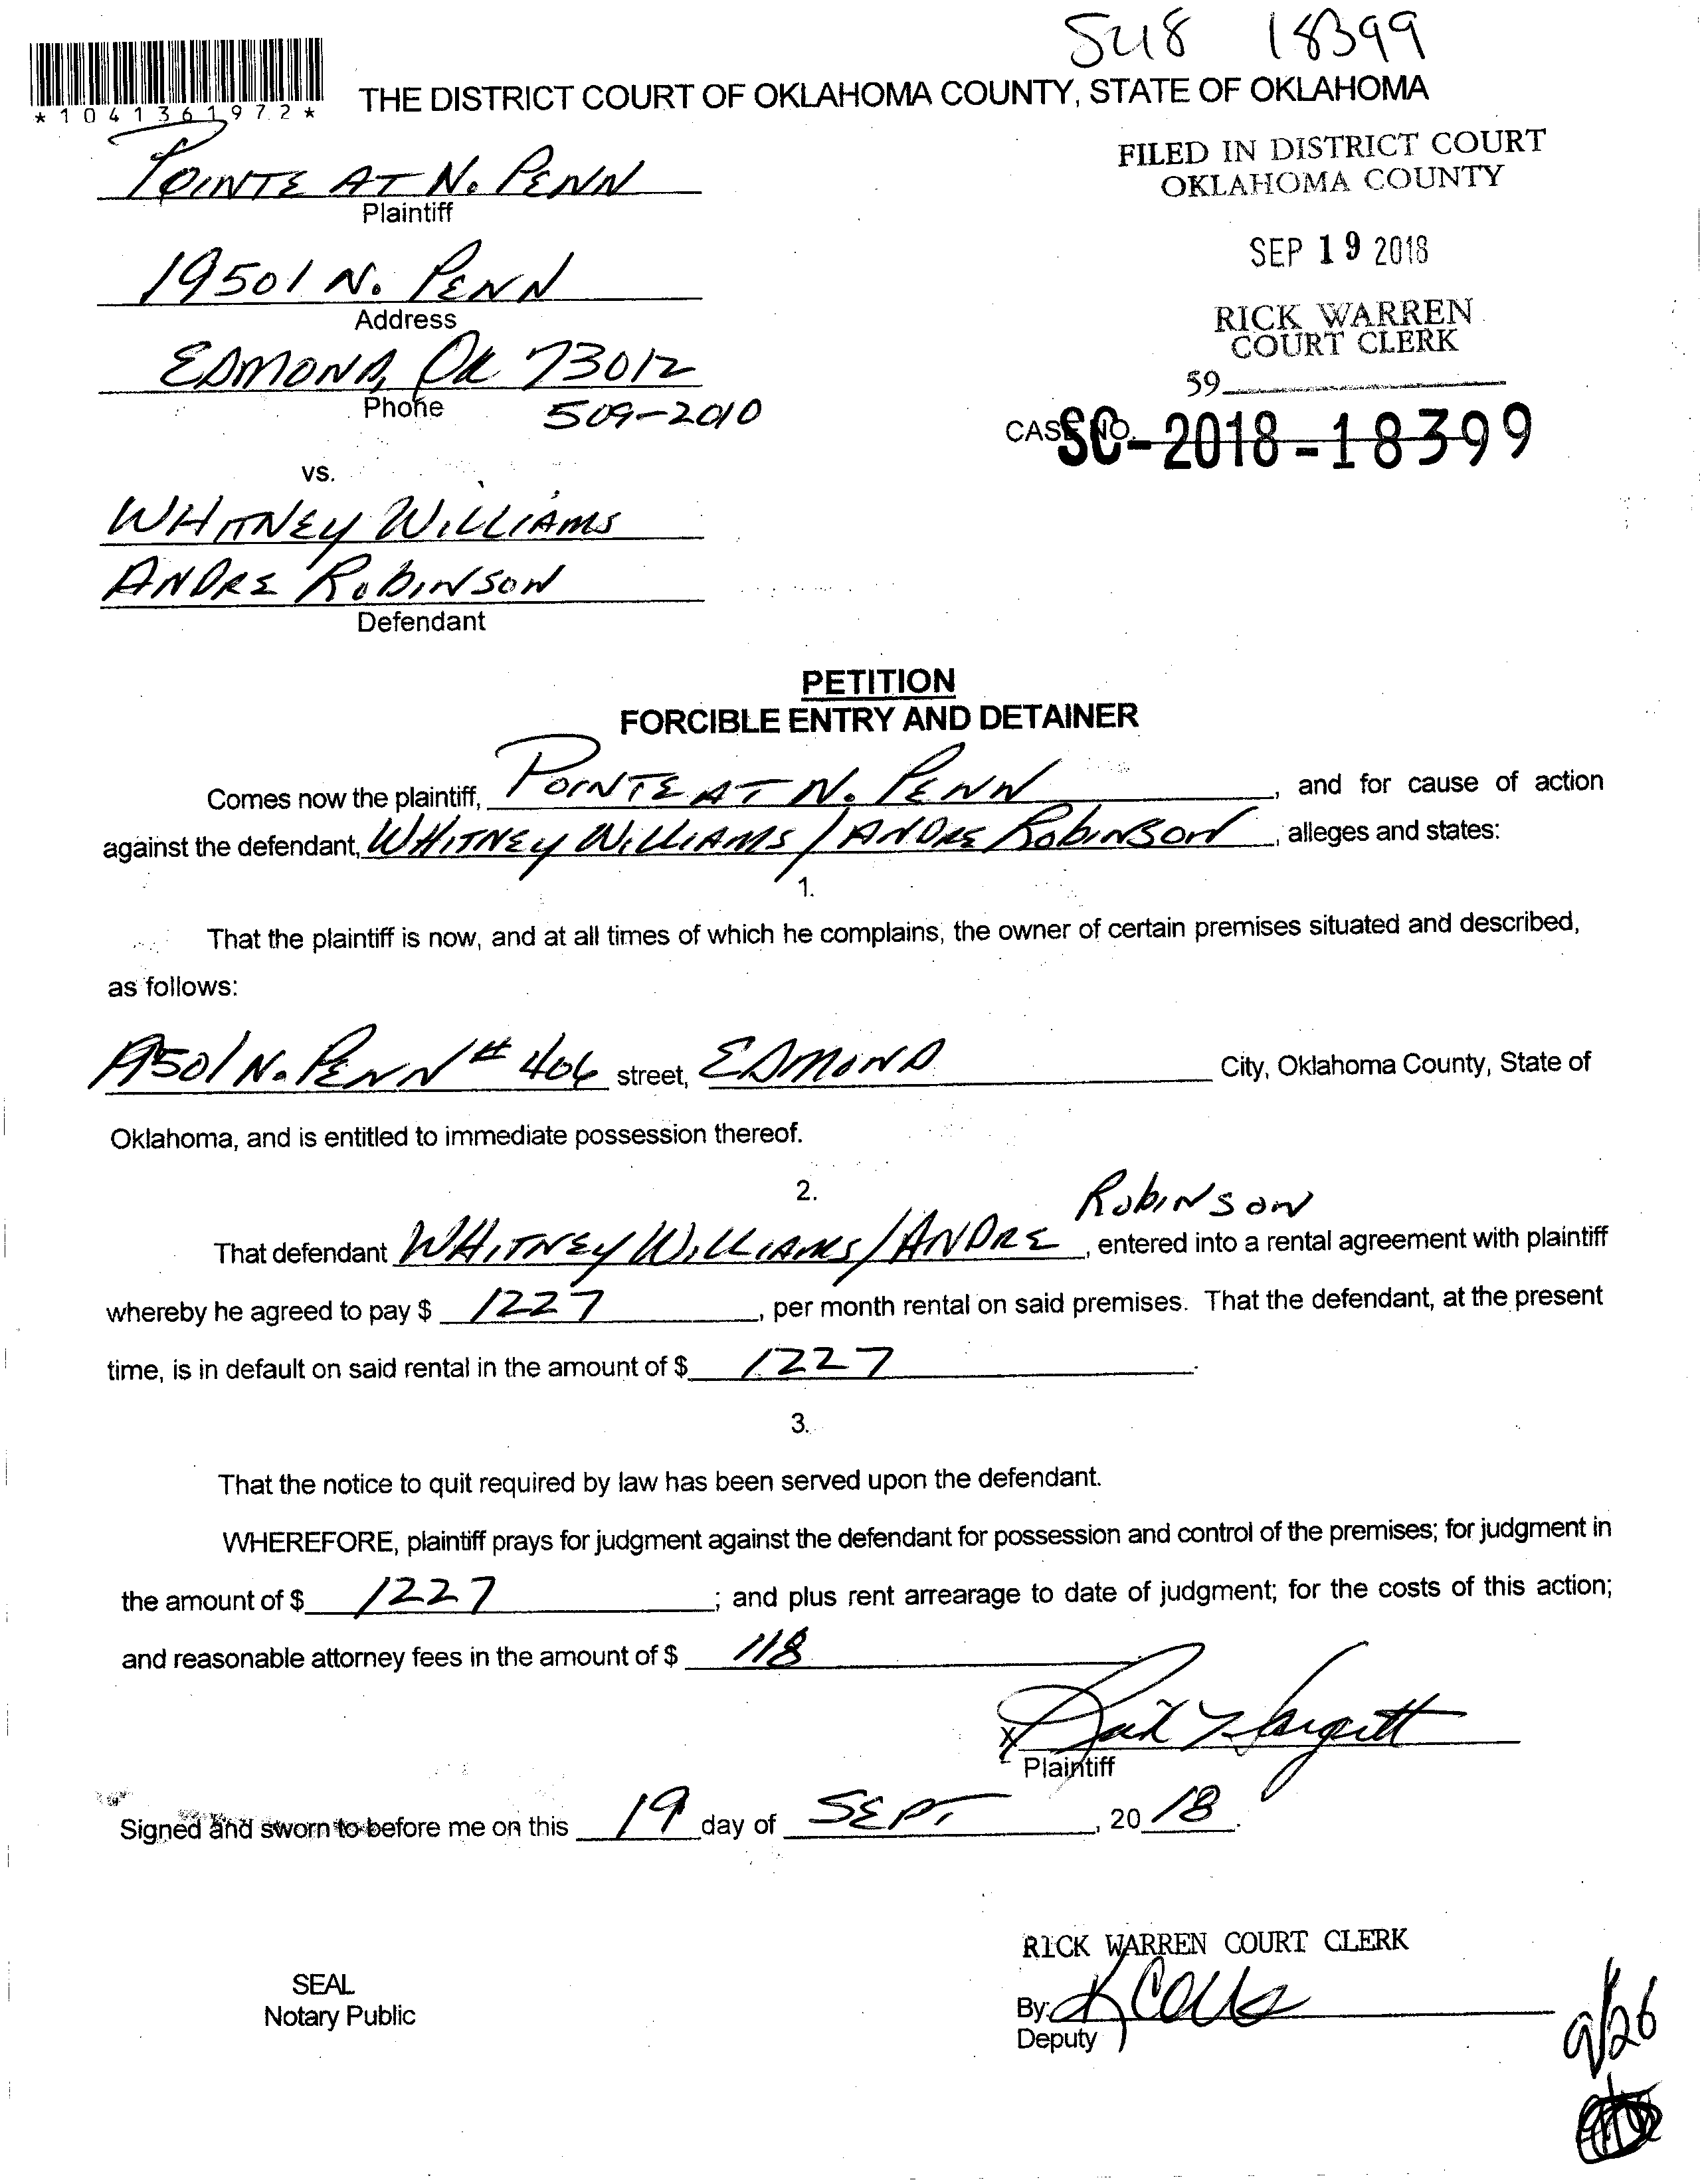 SC18 18399
*1041361972*
THE DISTRICT COURT OF OKLAHOMA COUNTY, STATE OF OKLAHOMA
FILED IN DISTRICT COURT
OKLAHOMA COUNTY
POINTE AT N. PENN
Plaintiff
SEP 19 2018
19501 N. PENN
Address
RICK WARREN
COURT CLERK
EDMOND, OK 73012
59
Phone 509-2010
CASE NO. SC-2018-18399
vs.
WHITNEY WILLIAMS
ANDRE ROBINSON
Defendant
PETITION
FORCIBLE ENTRY AND DETAINER
Comes now the plaintiff, POINTE AT N. PENN, and for cause of action
against the defendant, WHITNEY WILLIAMS / ANDRE ROBINSON, alleges and states:
1.
That the plaintiff is now, and at all times of which he complains, the owner of certain premises situated and described,
as follows:
19501 N. PENN # 406 street, EDMOND City, Oklahoma County, State of
Oklahoma, and is entitled to immediate possession thereof.
2.
ROBINSON
That defendant WHITNEY WILLIAMS / ANDRE, entered into a rental agreement with plaintiff
whereby he agreed to pay $ 1227, per month rental on said premises. That the defendant, at the present
time, is in default on said rental in the amount of $ 1227.
3.
That the notice to quit required by law has been served upon the defendant.
WHEREFORE, plaintiff prays for judgment against the defendant for possession and control of the premises; for judgment in
the amount of $ 1227; and plus rent arrearage to date of judgment; for the costs of this action;
and reasonable attorney fees in the amount of $ 118
X
Plaintiff
Signed and sworn to before me on this 19 day of SEPT, 2018.
RICK WARREN COURT CLERK
SEAL
Notary Public
By:
Deputy
9/26